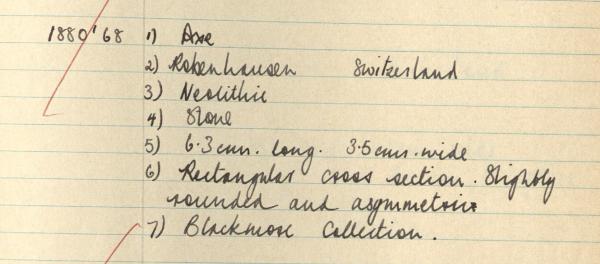 1880'68 1) Axe
2) Robenhausen Switzerland
3) Neolithic
4) Stone
5) 6.3 cms. long. 3.5 cms. wide
6) Rectangular cross section. Slightly
rounded and asymmetric
7) Blackmore Collection.